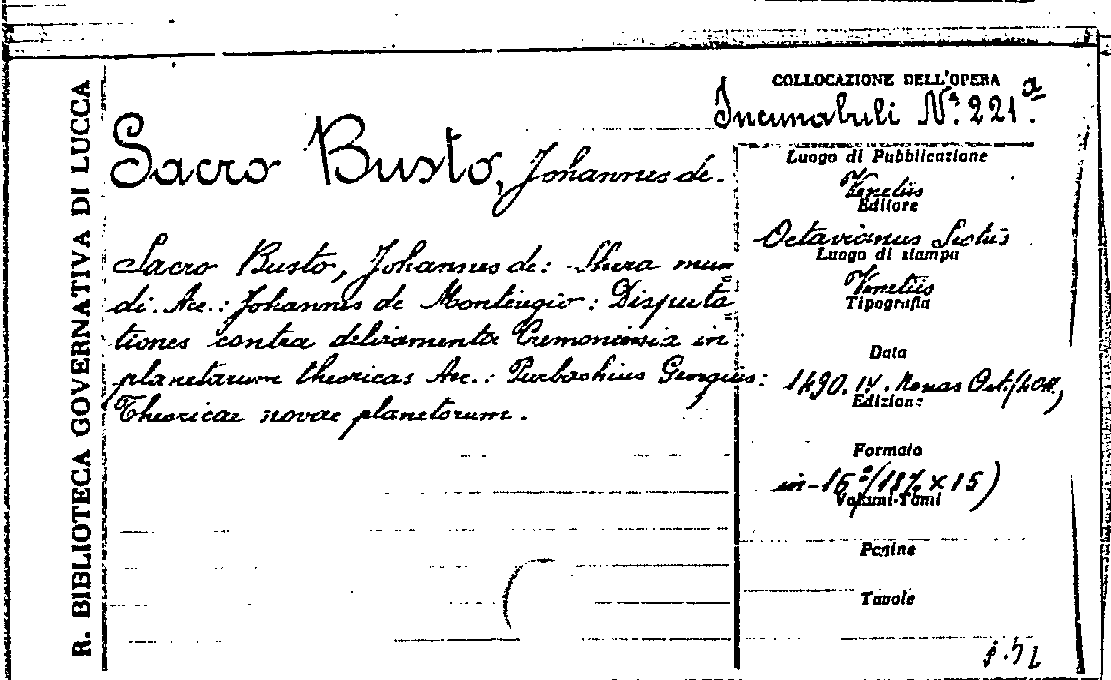 R. BIBLIOTECA GOVERNATIVA DI LUCCA
COLLOCAZIONE DELL'OPERA
Incunabuli N.º 221.a
Sacro Busto, Johannes de.
Sacro Busto, Johannes de: Shera mun
di. Ac.: Johannis de Monteregio: Disputa
tiones contra deliramenta Cremonensia in
planetarum theoricas Ac.: Purbachius Georgius:
Theoricae novae planetorum.
Luogo di Pubblicazione
Venetiis
Editore
Octavianus Scotus
Luogo di stampa
Venetiis
Tipografia
Data
1490. IV. Nonas Oct.
Edizione
Formato
in-16º
Volumi-Tomi
Pagine
Tavole